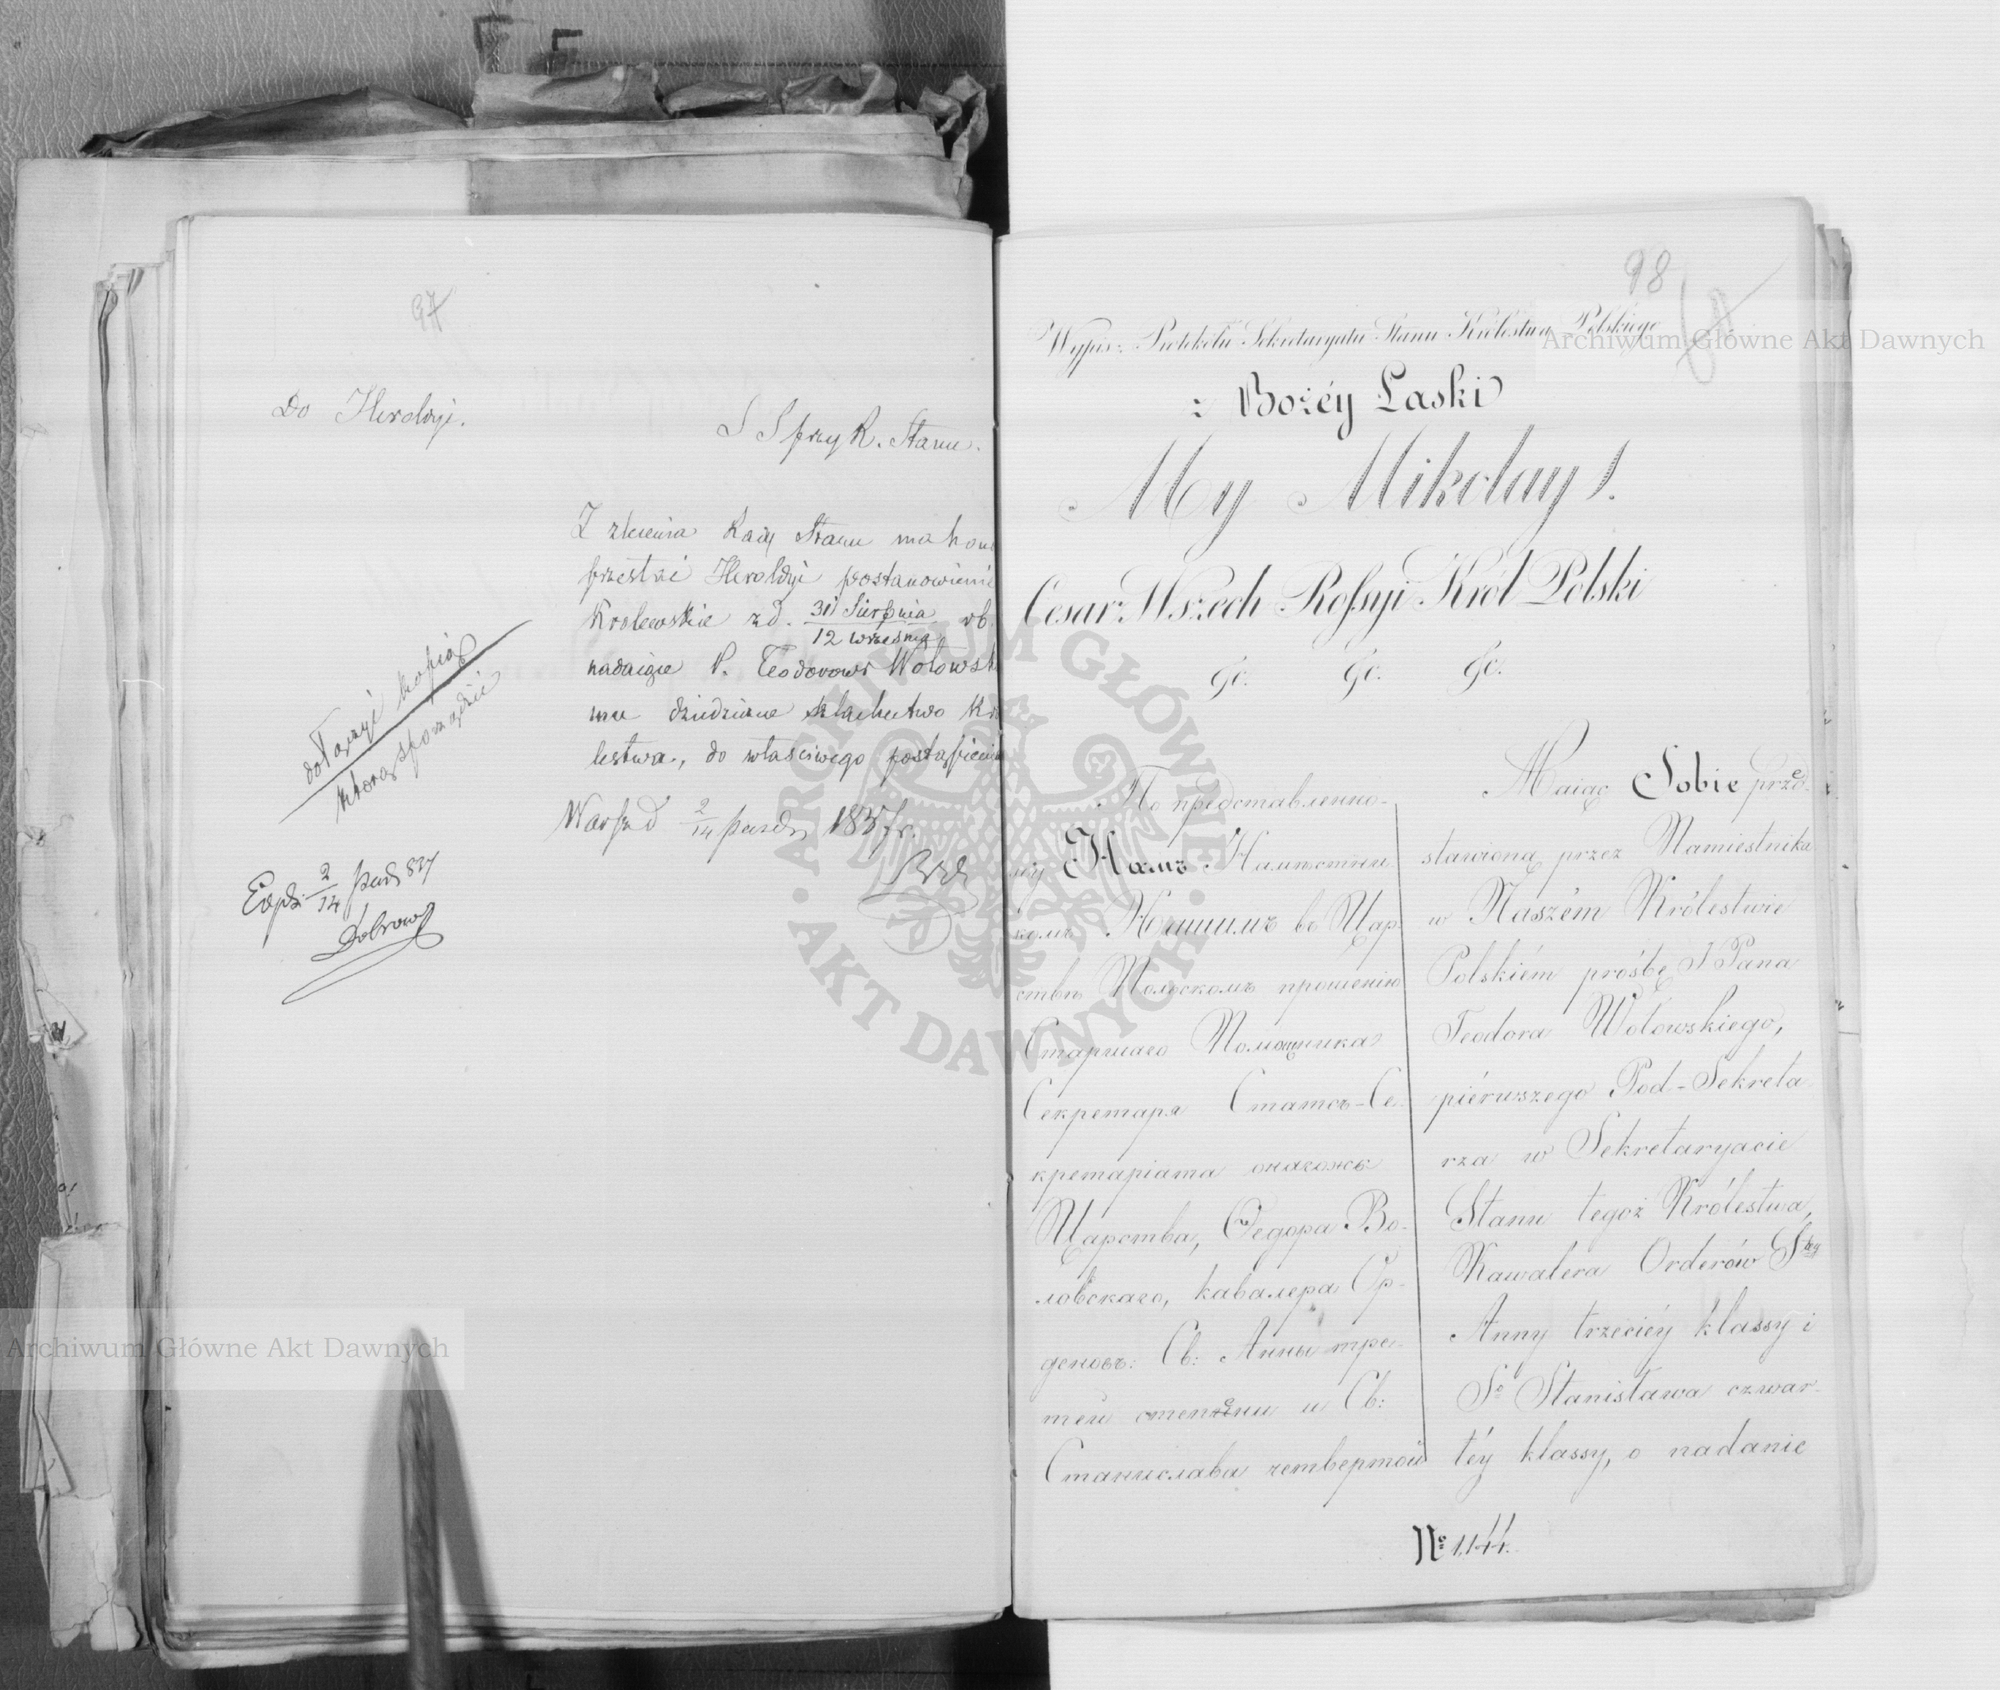 97
Do Heroldyi.
S S przy R. Stanu.
Z zlecenia Rady Stanu ma hono
przesłać Heroldyi postanowienie
Krolewskie z d. 31 Sierpnia rb.
12 września
nadaiące P. Teodorowi Wołowsk
mu dziedziczne szlachectwo Kró
lestwa, do właściwego postąpienia
Warsz d 2/14 paźdz 1837 r.
dołączyć kopią
którą sporządzić
Exped: 2/14 paźdz 837
Dobrows
98
Wypis z Protokółu Sekretaryatu Stanu Królestwa Polskiego
z Bożéy Łaski
My Mikołay I.
Cesarz Wszech Rossyi Król Polski
&c. &c. &c.
По представленно-
му Намъ Намѣстни
комъ Нашимъ въ Цар-
ствѣ Польскомъ прошенію
Старшаго Помощника
Секретаря Статсъ-Се-
кретаріата онагожъ
Царства, Ѳедора Во-
ловскаго, кавалера Ор-
деновъ: Св: Анны тре-
тей степени и Св:
Станислава четвертой
Maiąc Sobie przed-
stawioną przez Namiestnika
w Naszém Królestwie
Polskiém prośbę J Pana
Teodora Wołowskiego,
piérwszego Pod-Sekreta
rza w Sekretaryacie
Stanu tegoż Królestwa,
Kawalera Orderów Stéy
Anny trzeciéy klassy i
Sgo Stanisława czwar-
téy klassy, o nadanie
№ 1,144.
Archiwum Główne Akt Dawnych
Archiwum Główne Akt Dawnych
ARCHIWUM GŁÓWNE AKT DAWNYCH